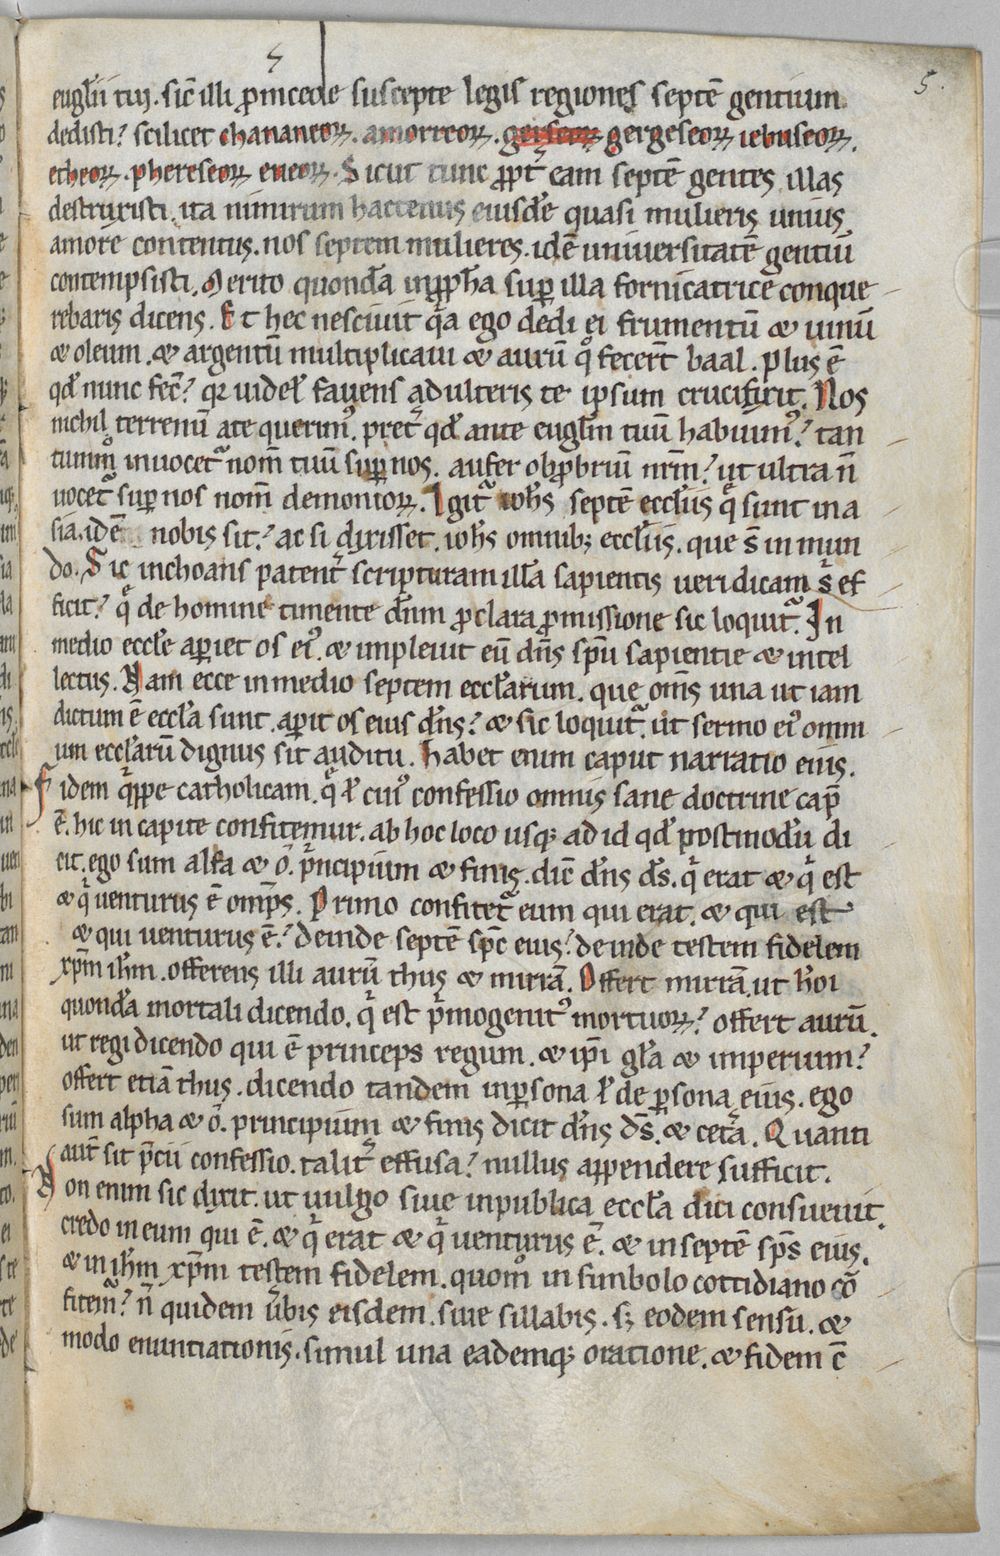 5.
eugl̄ii tuj. sic̄ illi ꝓ mcede suscepte legis regiones septē gentium
dedisti? scilicet chananeoꝝ. amorreoꝝ. gergeseoꝝ iebuseoꝝ.
etheoꝝ. phereseoꝝ eueoꝝ. Sicut tunc ꝓpt̄ eam septē gentes illas
destruxisti. ita nimirum hactenus eiusdē quasi mulieris unius
amore contentus. nos septem mulieres. idē uniuersitatē gentiū
contempsisti. Merito quondā in ꝓph̄a suꝑ illa fornicatrice conque
rebaris dicens. Et hec nesciuit qͣa ego dedi ei frumentū & uinū
& oleum. & argentū multiplicaui & aurū qͦ fecert̄ baal. Plus ē
qd̄ nunc fec̄? qꝛ uidel̄ fauens adulteris te ipsum crucifixit. Nos
nichil terrenū a te querimꝰ. pret̄ qd̄ ante eugl̄m tuū habuimꝰ? tan
tummͦ inuocet᷑ nom̄ tuū suꝑ nos. aufer obꝓbriū nr̄m? ut ultra n̄
uocet᷑ suꝑ nos nom̄ demonioꝝ. Igit᷑ ioh̄s septē eccl̄iis q̨ sunt in a
sia. idē nobis sit? ac si dixisset. ioh̄s omnibꝫ eccl̄iis. que s̄ in mun
do. Sic inchoans patent̄ scripturam illā sapientis ueridicam s̄ ef
ficit? q̨ de homine timente dn̄m ꝓclara ꝓmissione sic loquit᷑. In
medio eccl̄e aꝑiet os eiꝰ. & impleuit eū dn̄s sp̄u sapientie & intel
lectus. Nam ecce in medio septem eccl̄arum. que om̄s una ut iam
dictum ē eccl̄a sunt. aꝑit os eius dn̄s? & sic loquit᷑. ut sermo eiꝰ omni
um eccl̄arū dignus sit auditu. Habet enim caput narratio eius.
Fidem qͥppe catholicam. q̨ ł cuiꝰ confessio omnis sane doctrine cap̄
ē. hic in capite confitemur. ab hoc loco usqꝫ ad id qd̄ postmodū di
cit. ego sum alfa & ō. pͥncipium & finis. dic̄ dn̄s d̄s. qͥ erat & qͥ est
& qͥ uenturus ē omp̄s. Primo confitet᷑ eum qui erat. & qui est
& qui uenturus ē? deinde septē sp̄c eius? deinde testem fidelem
xp̄m ih̄m. offerens illi aurū thus & mirrā. Offert mirrā. ut hōi
quondā mortali dicendo. qͥ est pͥmogenitꝰ mortuoꝝ? offert aurū.
ut regi dicendo qui ē princeps regum. & ip̄i gl̄a & imperium?
offert etiā thus. dicendo tandem in ꝑsona ł de ꝑsona eius. ego
sum alpha & ō. principium & finis dicit dn̄s d̄s. & cet̄a. Quanti
aut̄ sit p̄cii confessio. talit̄ effusa? nullus appendere sufficit.
Non enim sic dixit. ut uulgo siue in publica eccl̄a dici consueuit.
credo in eum qui ē. & qͥ erat & qͥ uenturus ē. & in septē sp̄s eius.
& in ih̄m xp̄m testem fidelem. quomͦ in simbolo cottidiano cō
fitem᷑? n̄ quidem ūbis eisdem. siue sillabis. sꝫ eodem sensu. &
modo enuntiationis. simul una eademqꝫ oratione. & fidem c̄